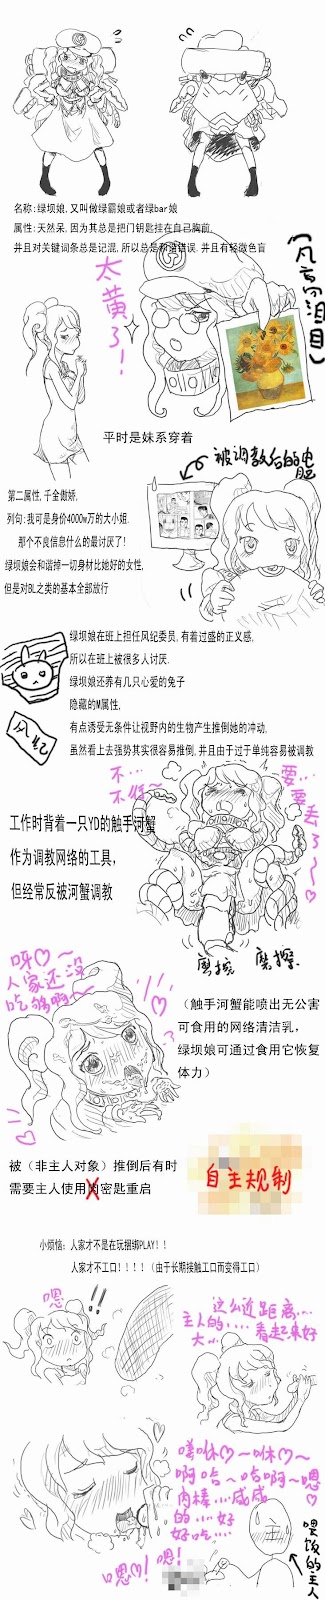 名称:绿坝娘,又叫做绿霸娘或者绿bar娘
属性:天然呆,因为其总是把门钥匙挂在自己胸前,
并且对关键词条总是记混,所以总是和谐错误.并且有轻微色盲
太黄了!
(凡高泪目)
平时是妹系穿着
被调教后的电脑
第二属性,千金傲娇.
列句:我可是身价4000w万的大小姐.
那个不良信息什么的最讨厌了!
绿坝娘会和谐掉一切身材比她好的女性,
但是对BL之类的基本全部放行
绿坝娘在班上担任风纪委员,有着过盛的正义感,
所以在班上被很多人讨厌.
绿坝娘还养有几只心爱的兔子
隐藏的M属性,
有点诱受无条件让视野内的生物产生推倒她的冲动,
虽然看上去强势其实很容易推倒,并且由于过于单纯容易被调教
风纪
不…
不行…
要…
要丢了
工作时背着一只YD的触手河蟹
作为调教网络的工具,
但经常反被河蟹调教
磨擦 磨擦
呀♡~
人家还没
吃够啊~
(触手河蟹能喷出无公害
可食用的网络清洁乳,
绿坝娘可通过食用它恢复
体力)
被(非主人对象)推倒后有时
需要主人使用肉密匙重启
自主规制
小烦恼:人家才不是在玩捆绑PLAY!!
人家才不工口!!!!(由于长期接触工口而变得工口)
嗯
!!
这么近距离…
主人的…看起来好
大…
噗咻♡~咻♡~
啊哈~哈啊~嗯♡
肉棒…咸咸
的…好
好吃…
嗯♡!嗯!
喂饭的主人